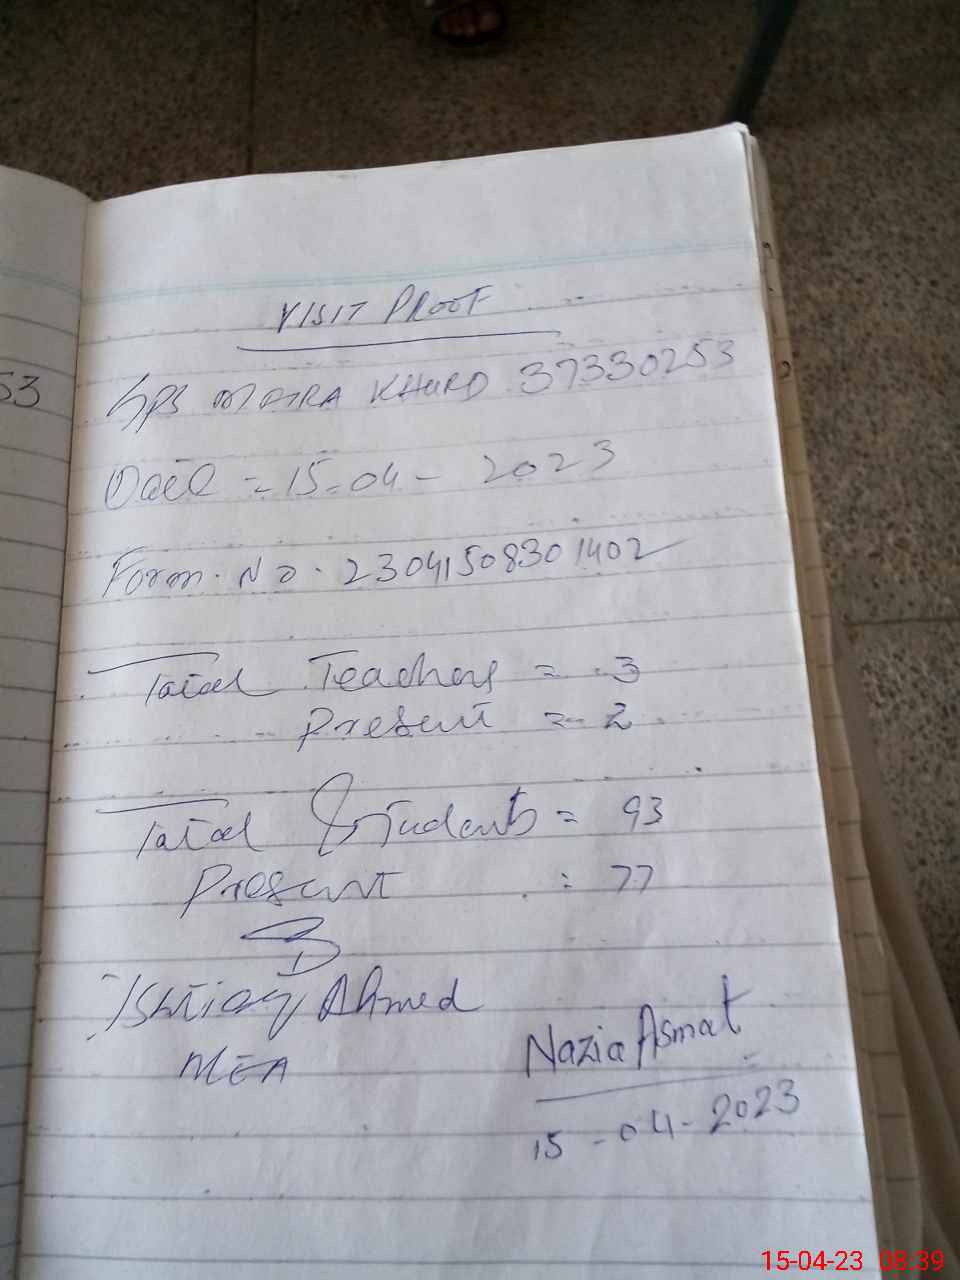 VISIT PROOF
GPS MATRA KHURD 37330253
53
Date = 15-04-2023
Form. No. 23041508301402
Total Teachers = 3
Present = 2
Total Students = 93
Present : 77
Ishtiaq Ahmed
MEA
Nazia Asmat
15-04-2023
15-04-23 08:39